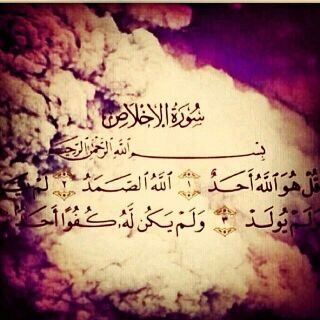 سُورَةُ الإِخْلَاصِ
بِسْمِ اللَّهِ الرَّحْمَٰنِ الرَّحِيمِ
قُلْ هُوَ اللَّهُ أَحَدٌ ١ اللَّهُ الصَّمَدُ ٢ لَمْ
وَلَمْ يُولَدْ ٣ وَلَمْ يَكُن لَّهُ كُفُوًا أَحَدٌ